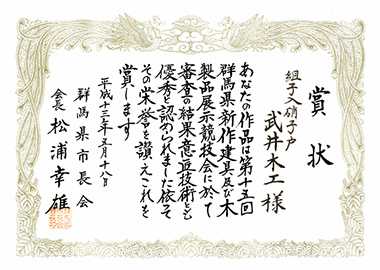 賞状
組子入硝子戸
武井木工様
あなたの作品は第十五回
群馬県新作建具及び木
製品展示競技会に於て
審査の結果意匠技術とも
優秀と認められました依って
その栄誉を讃えこれを
賞します
平成十三年五月十八日
群馬県市長会
会長 松浦幸雄